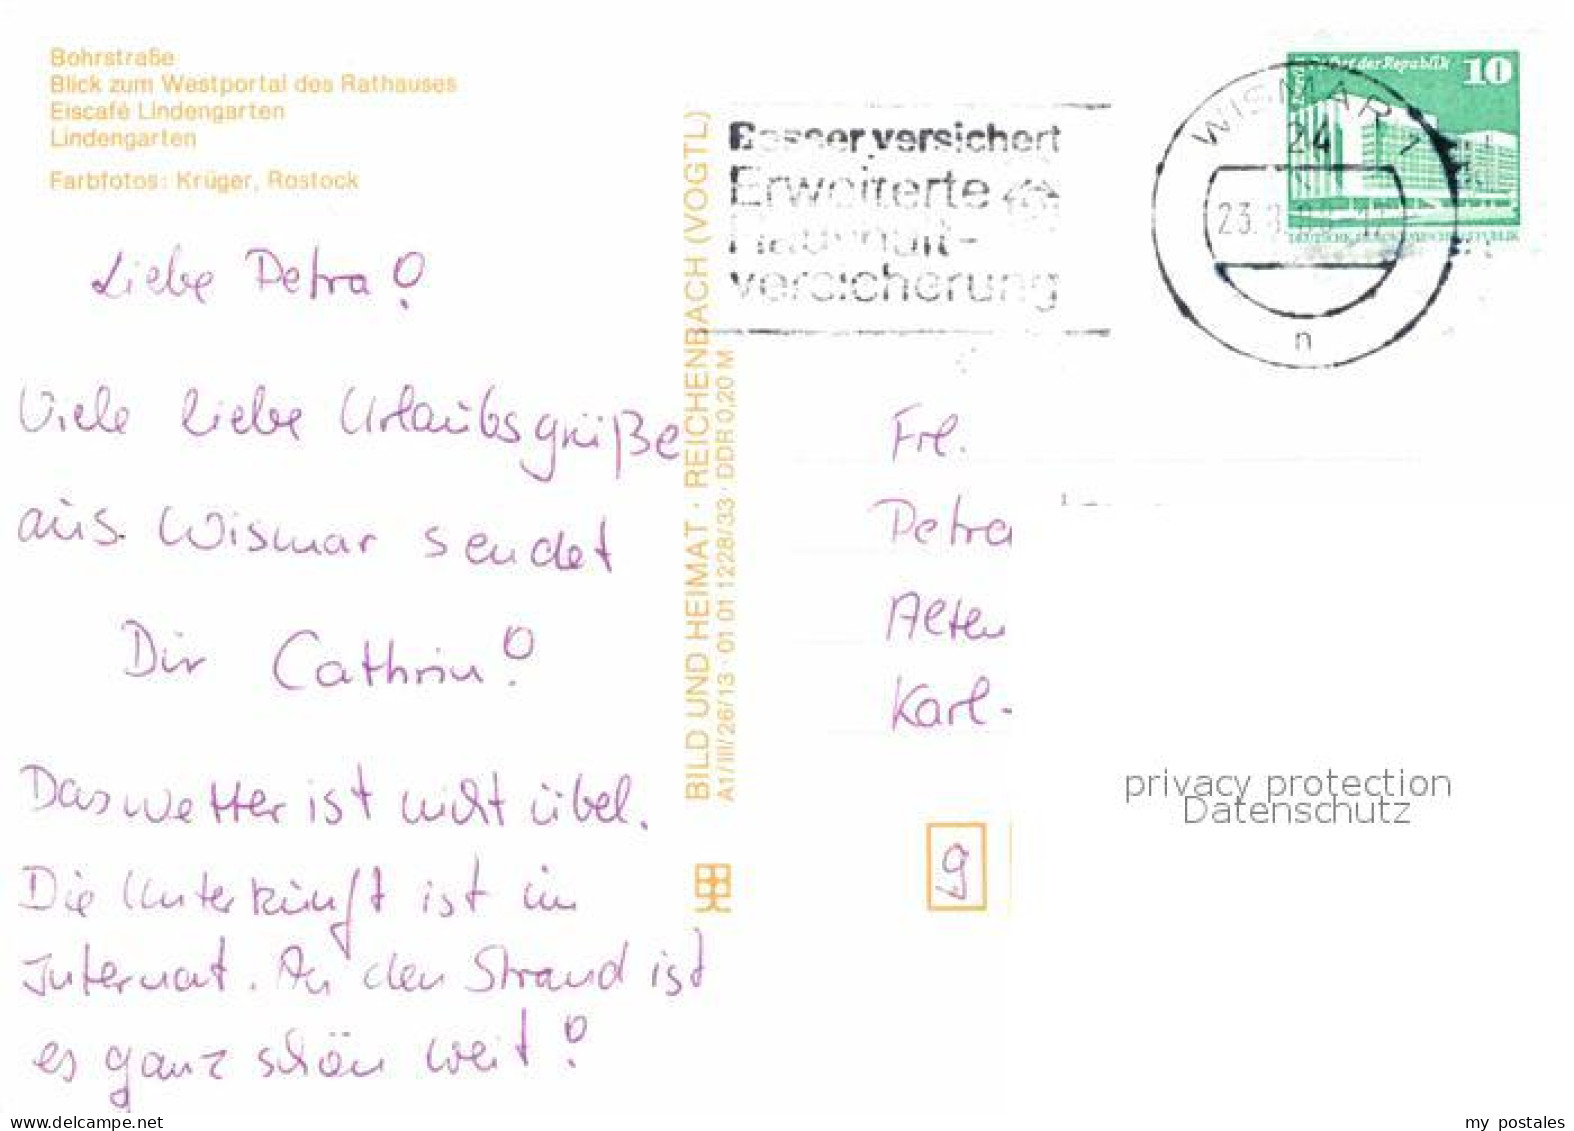 Bohrstraße
Blick zum Westportal des Rathauses
Eiscafé Lindengarten
Lindengarten
Farbfotos: Krüger, Rostock
Liebe Petra!
Viele liebe Urlaubsgrüße
aus Wismar sendet
Dir Cathrin!
Das Wetter ist nicht übel.
Die Unterkunft ist im
Internat. An den Strand ist
es ganz schön weit!
BILD UND HEIMAT · REICHENBACH (VOGTL)
A1/III/26/13 · 01 01 1228/33 · DDR 0,20 M
Besser versichert
Erweiterte
Haushalt-
versicherung
WISMAR 1
24
n
Palast der Republik 10
Frl.
Petra
Alten
Karl-
g
privacy protection
Datenschutz
www.delcampe.net
my postales